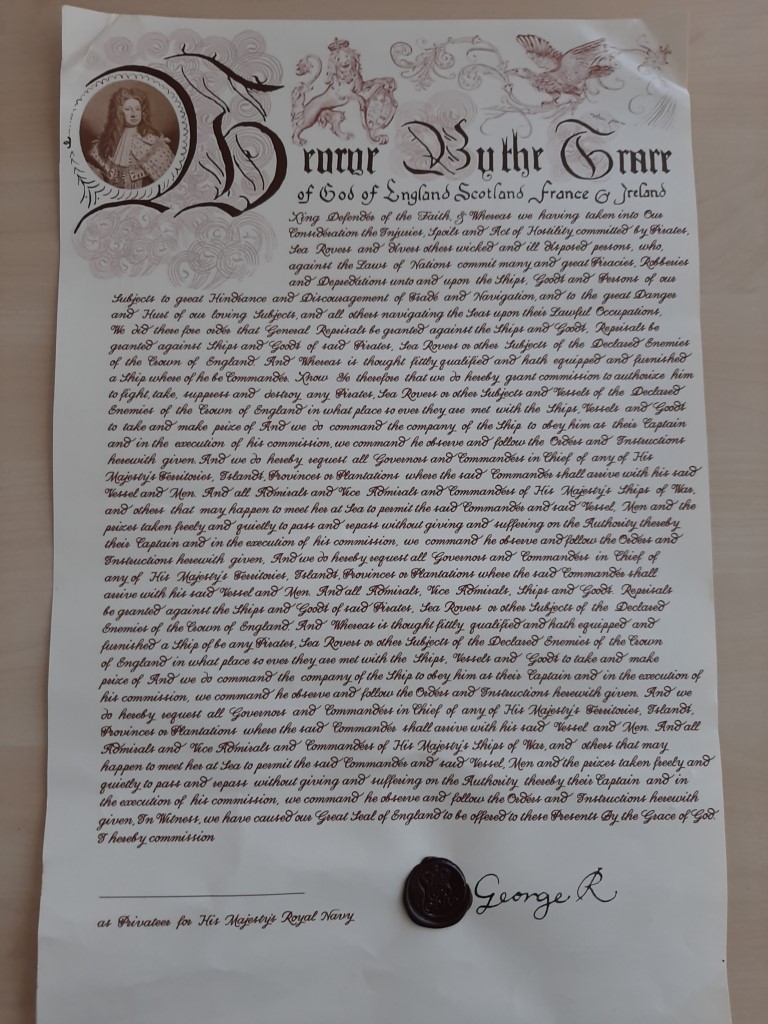 George By the Grace
of God of England Scotland France & Ireland
King Defender of the Faith, & Whereas we having taken into Our
Consideration the Injuries, Spoils and Act of Hostility committed by Pirates,
Sea Rovers and divers others wicked and ill disposed persons, who,
against the Laws of Nations commit many and great Piracies, Robberies
and Depredations unto and upon the Ships, Goods and Persons of our
Subjects to great Hindrance and Discouragement of Trade and Navigation, and to the great Danger
and Hurt of our loving Subjects, and all others navigating the Seas upon their Lawful Occupations,
We did there fore order that General Reprisals be granted against the Ships and Goods, Reprisals be
granted against Ships and Goods of said Pirates, Sea Rovers or other Subjects of the Declared Enemies
of the Crown of England And Whereas is thought fittly qualified and hath equipped and furnished
a Ship where of he be Commander. Know Ye therefore that we do hereby grant commission to authorize him
to fight, take, suppress and destroy any Pirates, Sea Rovers or other Subjects and Vessels of the Declared
Enemies of the Crown of England in what place so ever they are met with the Ships, Vessels and Goods
to take and make prize of And we do command the company of the Ship to obey him as their Captain
and in the execution of his commission, we command he observe and follow the Orders and Instructions
herewith given. And we do hereby request all Governors and Commanders in Chief of any of His
Majesty's Territories, Islands, Provinces or Plantations where the said Commander shall arrive with his said
Vessel and Men. And all Admirals and Vice Admirals and Commanders of His Majesty's Ships of War,
and others that may happen to meet her at Sea to permit the said Commander and said Vessel, Men and the
prizes taken freely and quietly to pass and repass without giving and suffering on the Authority thereby
their Captain and in the execution of his commission, we command he observe and follow the Orders and
Instructions herewith given, And we do hereby request all Governors and Commanders in Chief of
any of His Majesty's Territories, Islands, Provinces or Plantations where the said Commander shall
arrive with his said Vessel and Men. And all Admirals, Vice Admirals, Ships and Goods. Reprisals
be granted against the Ships and Goods of said Pirates, Sea Rovers or other Subjects of the Declared
Enemies of the Crown of England And Whereas is thought fittly qualified and hath equipped and
furnished a Ship of be any Pirates, Sea Rovers or other Subjects of the Declared Enemies of the Crown
of England in what place so ever they are met with the Ships, Vessels and Goods to take and make
prize of And we do command the company of the Ship to obey him as their Captain and in the execution of
his commission, we command he observe and follow the Orders and Instructions herewith given. And we
do hereby request all Governors and Commanders in Chief of any of His Majesty's Territories, Islands,
Provinces or Plantations where the said Commander shall arrive with his said Vessel and Men. And all
Admirals and Vice Admirals and Commanders of His Majesty's Ships of War, and others that may
happen to meet her at Sea to permit the said Commander and said Vessel, Men and the prizes taken freely and
quietly to pass and repass without giving and suffering on the Authority thereby their Captain and in
the execution of his commission, we command he observe and follow the Orders and Instructions herewith
given, In Witness, we have caused our Great Seal of England to be offered to these Presents By the Grace of God.
I hereby commission
George R
as Privateer for His Majesty's Royal Navy